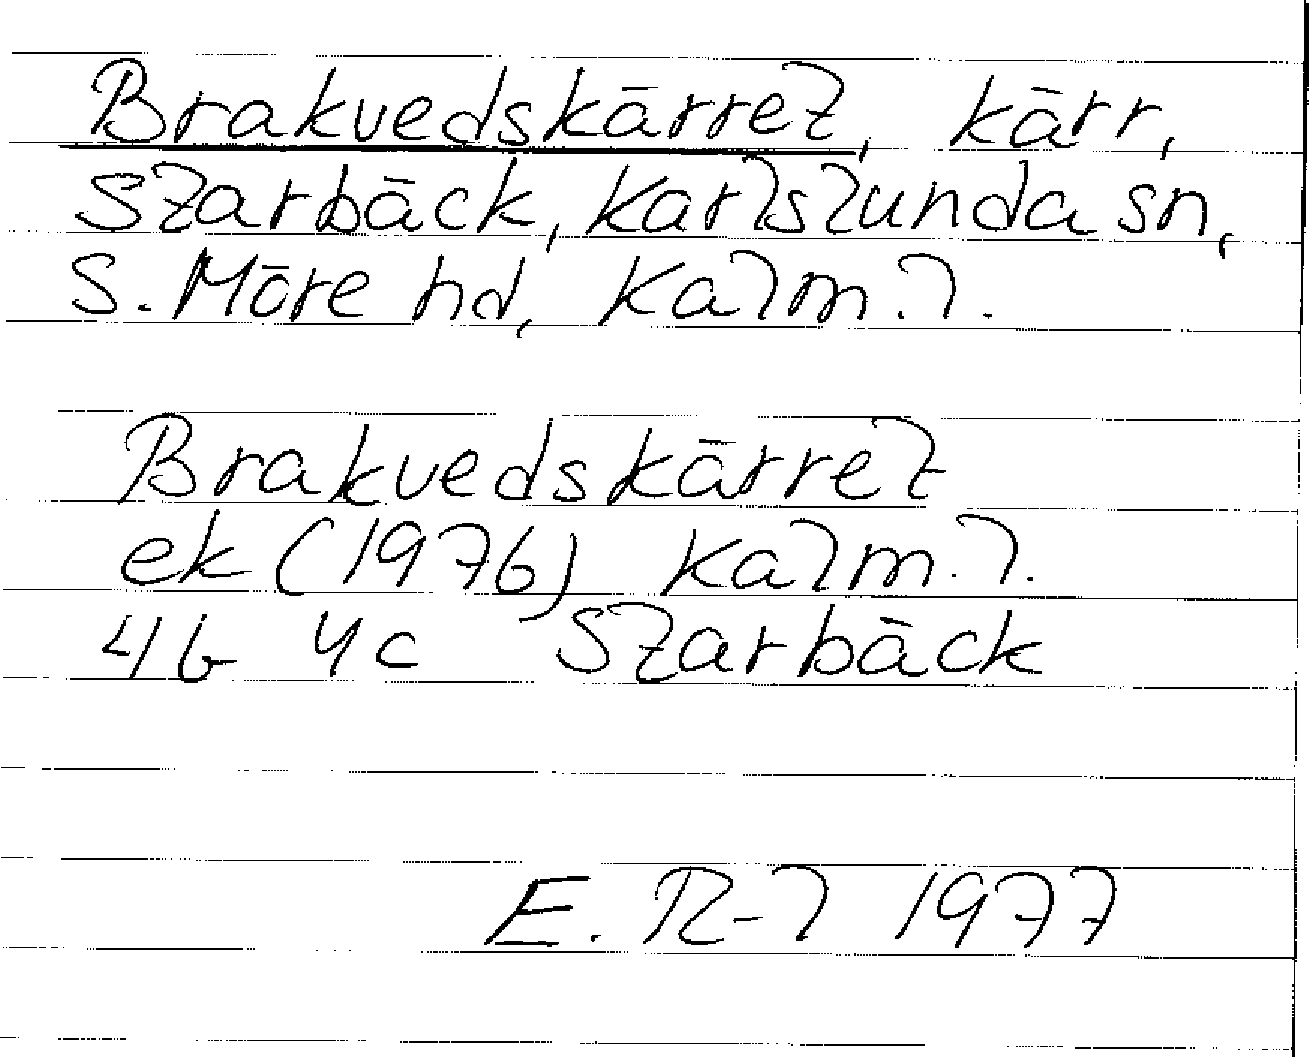 Brakvedskärret, kärr,
Starbäck, Karlslunda sn,
S. Möre hd, Kalm. l.
Brakvedskärret
ek (1976) Kalm. l.
4b 4c Starbäck
E. R-l 1977